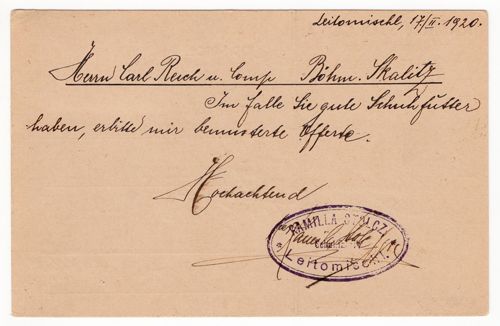 Leitomischl, 17/II. 1920.
Herrn Carl Reich u. Comp Böhm. Skalitz
Im falle Sie gute Schuhfutter
haben, erbitte mir bemusterte Offerte.
Hochachtend
KAMILLA
Leitomischl.